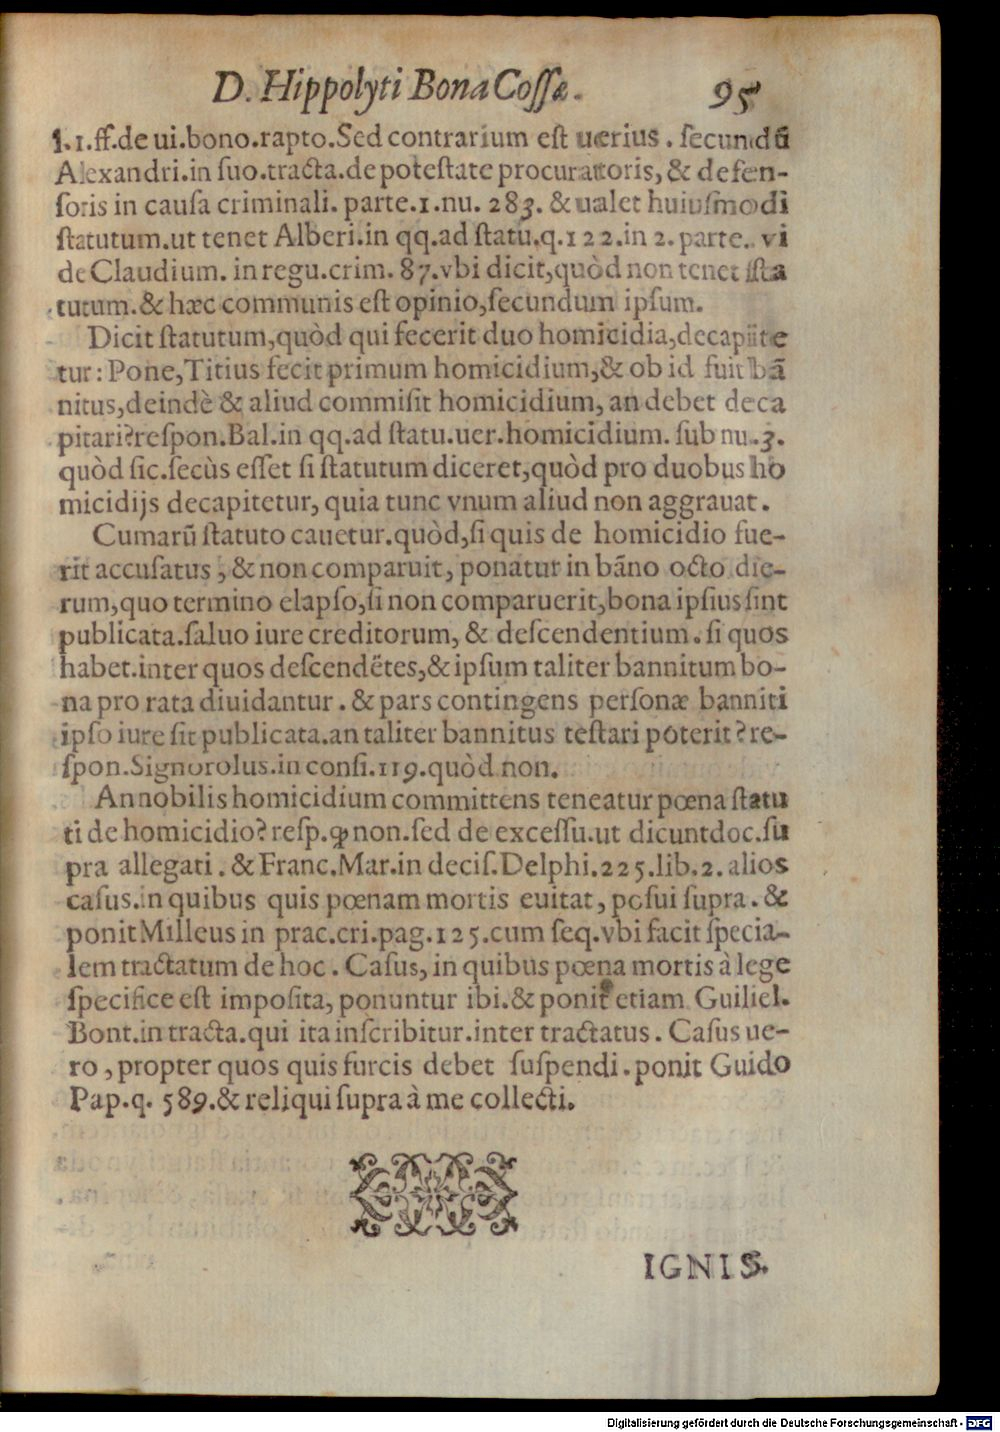 D. Hippolyti Bona Cossæ. 95
l.1.ff.de ui.bono.rapto.Sed contrarium est uerius. secundũ
Alexandri.in suo.tracta.de potestate procuratoris, & defen-
soris in causa criminali. parte.1.nu. 283. & ualet huiusmodi
statutum.ut tenet Alberi.in qq.ad statu.q.122.in 2. parte. vi
de Claudium. in regu.crim. 87.vbi dicit,quòd non tenet ista
tutum.& hæc communis est opinio,secundum ipsum.
Dicit statutum,quòd qui fecerit duo homicidia,decapite
tur: Pone,Titius fecit primum homicidium,& ob id fuit bã
nitus,deindè & aliud commisit homicidium, an debet deca
pitari?respon.Bal.in qq.ad statu.uer.homicidium. sub nu.3.
quòd sic.secùs esset si statutum diceret,quòd pro duobus ho
micidijs decapitetur, quia tunc vnum aliud non aggrauat.
Cumarũ statuto cauetur.quòd,si quis de homicidio fue-
rit accusatus, & non comparuit, ponatur in bãno octo die-
rum,quo termino elapso,si non comparuerit,bona ipsius sint
publicata.saluo iure creditorum, & descendentium. si quos
habet.inter quos descendẽtes,& ipsum taliter bannitum bo-
na pro rata diuidantur. & pars contingens personæ banniti
ipso iure sit publicata.an taliter bannitus testari poterit? re-
spon.Signorolus.in consi.119.quòd non.
An nobilis homicidium committens teneatur pœna statu
ti de homicidio? resp.ꝙ non.sed de excessu.ut dicunt doc.su
pra allegati. & Franc.Mar.in decis.Delphi.225.lib.2. alios
casus.in quibus quis pœnam mortis euitat, posui supra. &
ponit Milleus in prac.cri.pag.125.cum seq.vbi facit specia-
lem tractatum de hoc. Casus, in quibus pœna mortis à lege
specifice est imposita, ponuntur ibi.& ponit etiam Guiliel.
Bont.in tracta.qui ita inscribitur.inter tractatus. Casus ue-
ro, propter quos quis furcis debet suspendi. ponit Guido
Pap.q. 589.& reliqui supra à me collecti.
IGNIS.
Digitalisierung gefördert durch die Deutsche Forschungsgemeinschaft - DFG